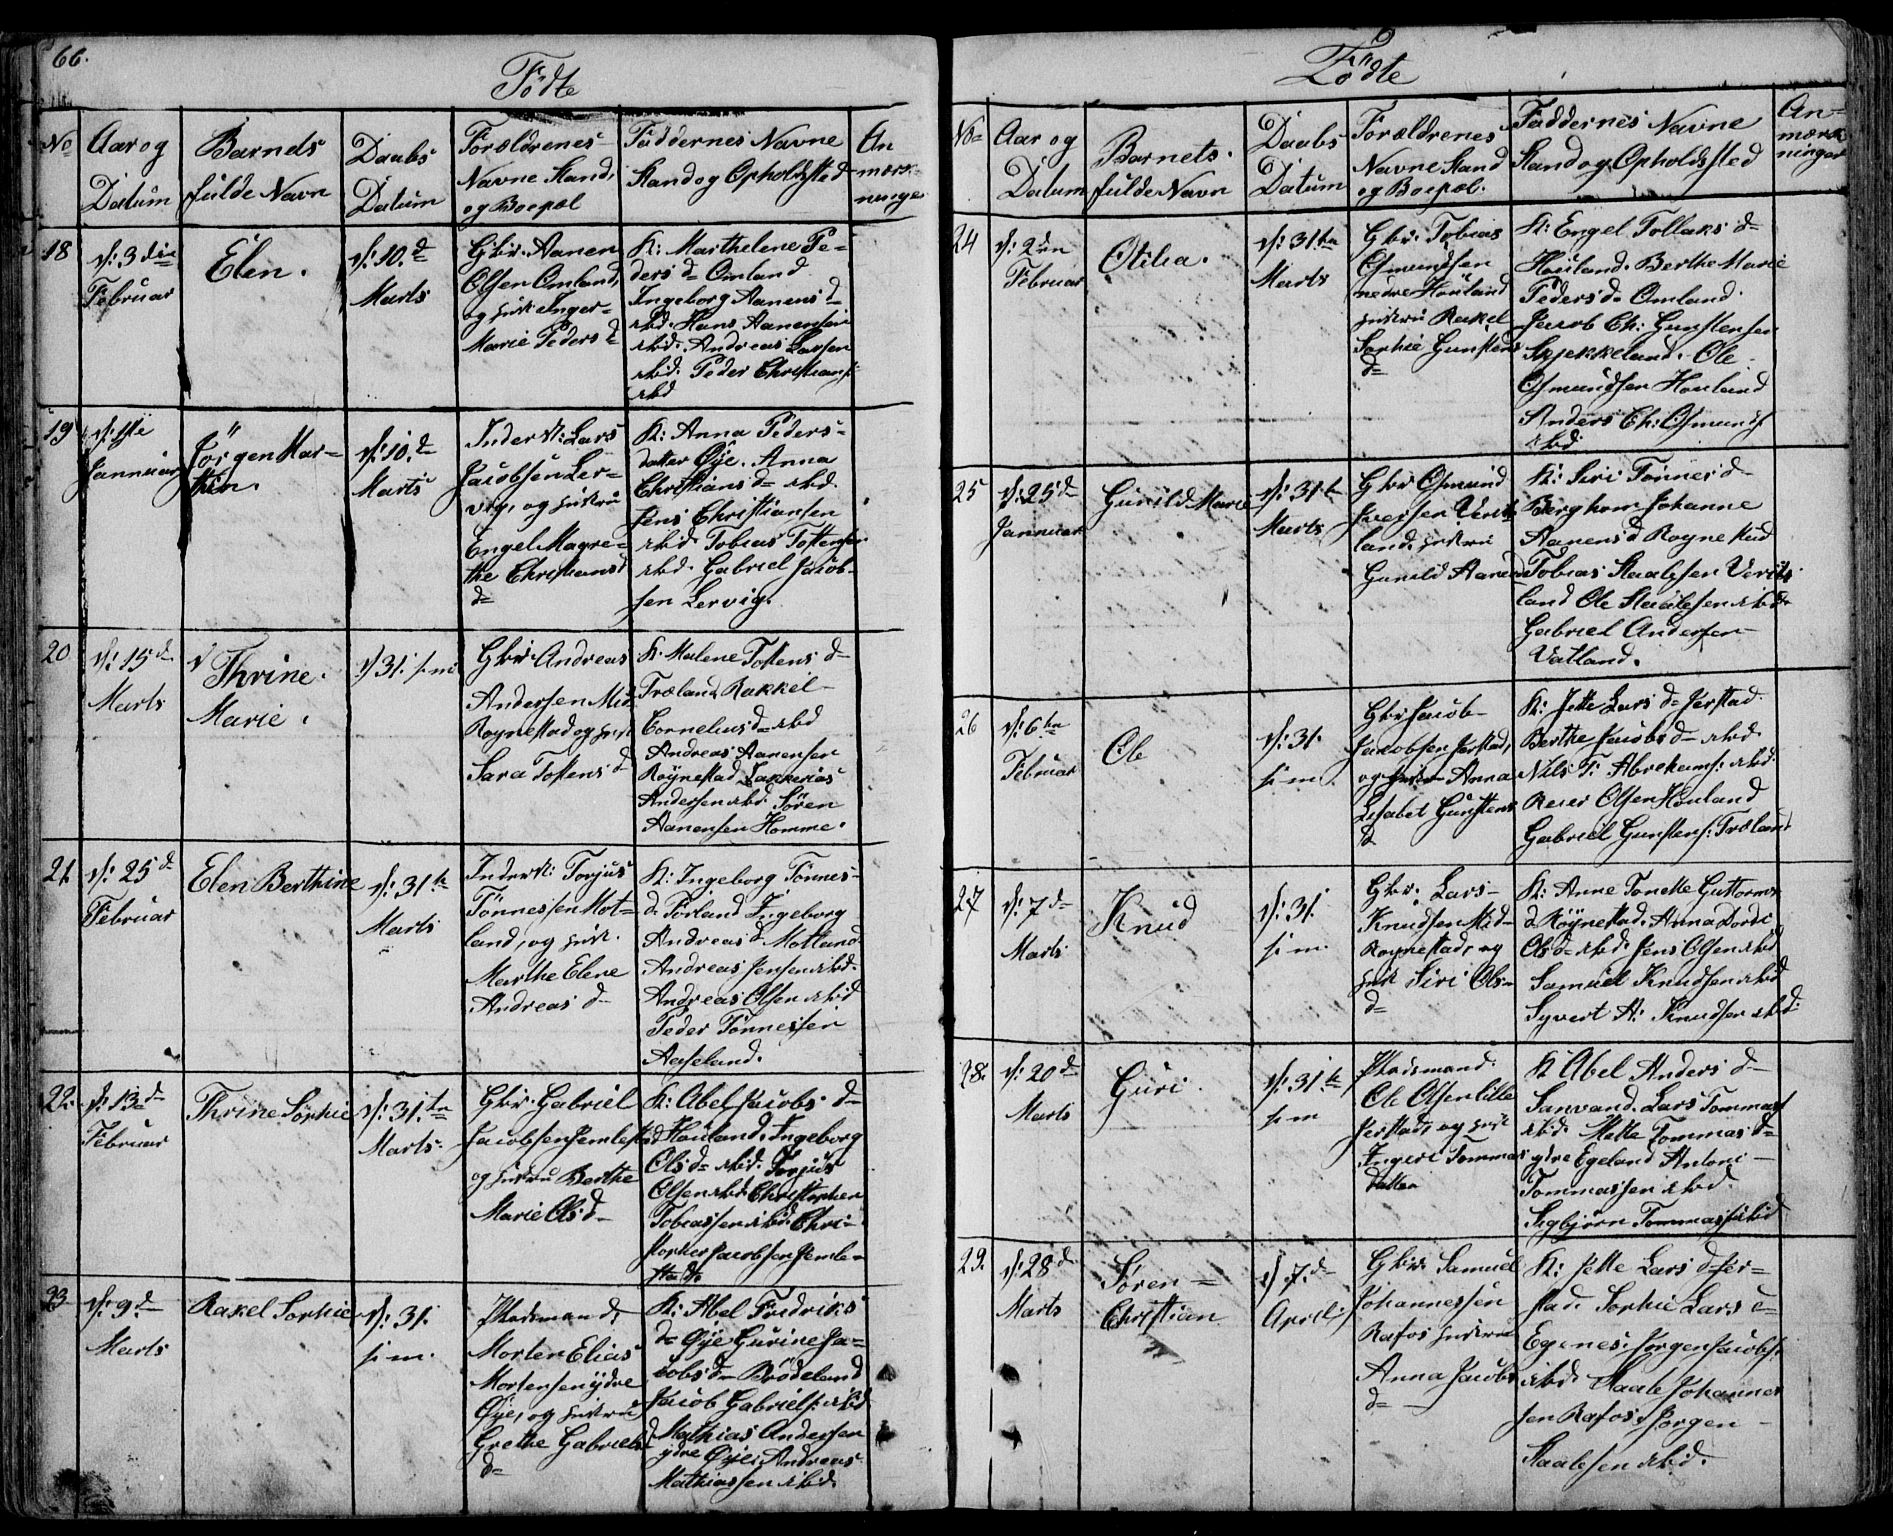 66.
Födte
No
Aar og
Datum
Barnets
fulde Navn
Daabs
Datum
Forældrenes
Navne Stand,
og Boepæl
Faddernes Navne
Stand og Opholdsted
An
mærk-
ninge
18
d: 3 die
Februar
Elen.
d: 10. d
Marts
Gbr: Aanen
Olsen Omland,
og hust Inger
Marie Peders d
K: Marthelene Pe-
ders d Omland
Ingeborg Aanens d
ibid. Hans Aanensen
ibid. Andreas Larsen
ibid. Peder Christians:
ibid
19
d: 1ste
Jannuar
Jörgen Mar-
thin.
d: 10. d
Marts
Inders: Lars
Jacobsen Ler-
vig, og hustru
Engel Magre-
the Christians
d
K: Anna Peders-
datter Öÿe. Anna
Christians d ibid.
Jens Christiansen
ibid. Tobias Tostensen
ibid. Gabriel Jacob-
sen Lervig.
20
d: 15 d
Marts
Thrine
Marie.
d 31. s. m
Gbr: Andreas
Andersen Mid
Röynestad og hust
Sara Tostens d
K: Malene Tostens d
Træland Rakkel
Cornelius d ibid
Andreas Aanensen
Röynestad Zakkerias
Andersen ibid Sören
Aanensen Homme.
21
d: 25 d
Februar
Elen Berthine
d: 31 te
Marts
Inders: Torjus
Tönnessen Mot-
land, og hust.
Marthe Elene
Andreas d
K: Ingeborg Tönnes-
d Förland Ingeborg
Andreas d Motland
Andreas Jensen ibid.
Andreas Olsen ibid
Peder Tönnessen
Aaseland.
22.
d: 13 d
Februar
Thrine Sophie
d: 31. te
Marts.
Gbr: Gabriel
Jacobsen Jemlestad
og hustru Berthe
Marie Ols d
K: Abel Jacobs d
Houland, Ingeborg
Ols d ibid. Torjus
Olsen ibid Christopher
Tobiassen ibid. Chri-
stopher Jacobsen Jemle-
stad.
23
d: 9 d
Marts
Rakel Sophie
d: 31.
s: m.
Pladsmand
Morten Elias
Mortensen ÿdre
Öÿe, og hustru
Grethe Gabriels
d
K: Abel Fredriks
d Öÿe Gurine Ja-
cobs d Brödeland
Jacob Gabriels: ibid
Mathias Andersen
ÿdre Öÿe, Andreas
Mathiassen ibid.
Födte
No
Aar og
Datum
Barnets
fulde Navn
Daabs
Datum
Forældrenes
Navne Stand
og Boepæl.
Faddernes Navne
Stand og Opholdsted
An-
mærk-
ninger
24
d: 2 den
Februar
Otilia.
d: 31 te
Marts
Gbr: Tobias
Osmundsen
nedre Houland
hustru Rakel
Sophie Gunstens
d
K: Engel Tollaks d
Houland. Berthe Marie
Peders d Omland.
Jacob Ch: Gunstensen
Skjekkeland. Ole
Osmundsen Houland
Anders Ch: Osmunds
ibid
25
d: 25 d
Jannuar
Gunild Marie
d: 31 te
Marts
Gbr Osmund
Iversen Verds
land, hustru
Gunild Aanens
K: Siri Tönnes d
Berghom Johanne
Aanens d Röyne Kud
Tobias Staalesen Verds
land Ole Staalesen ibid
Gabriel Andersen
Vatland.
26
d: 6 te
Februar
Ole
d: 31.
s: m.
Gbr Jacob
Jacobsen Jerstad,
og hustru Anna
Lisabet Gunstens
d
K: Jette Lars d Jerstad.
Berthe Jacobs d ibid.
Nils T: Abrehams: ibid.
Reier Olsen Houland
Gabriel Gunstens: Træland
27
d: 7 d
Marts
Knud
d: 31.
s: m.
Gbr: Lars
Knudsen Mid-
Röynestad, og
hust Siri Ols-
d
K: Anne Tonette Guttorms
d Röynestad. Anna Dorte
Ols d ibid. Jens Olsen ibid
Samuel Knudsen ibid
Syvert A: Knudsen ibid:
28.
d: 20 d
Marts
Guri.
d: 31 te
s: m
Pladsmand.
Ole Olsen lille
Jerstad, og hust
Ingeri Tommas
datter
K: Abel Anders d
Sanvand. Lars Tommass
ibid. Mette Tommas d
ydre Egeland Antoni
Tommassen ibid.
Sigbjörn Tommass: ibid
29.
d: 28 d
Marts
Sören
Christian
d 7. d
April
Gbr: Samuel
Johannessen
Rafos hustru
Anna Jacobs
d
K: Jette Lars d Jer-
stad. Sophie Lars d
Egenes. Jorgen Jacobs:
ibid. Staale Johannes
sen Rafos, Jorgen
Staalesen ibid.